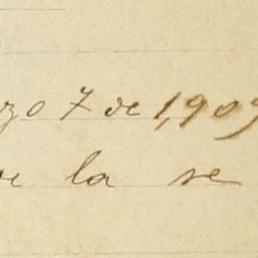 zo 7 de 1,909
de la se